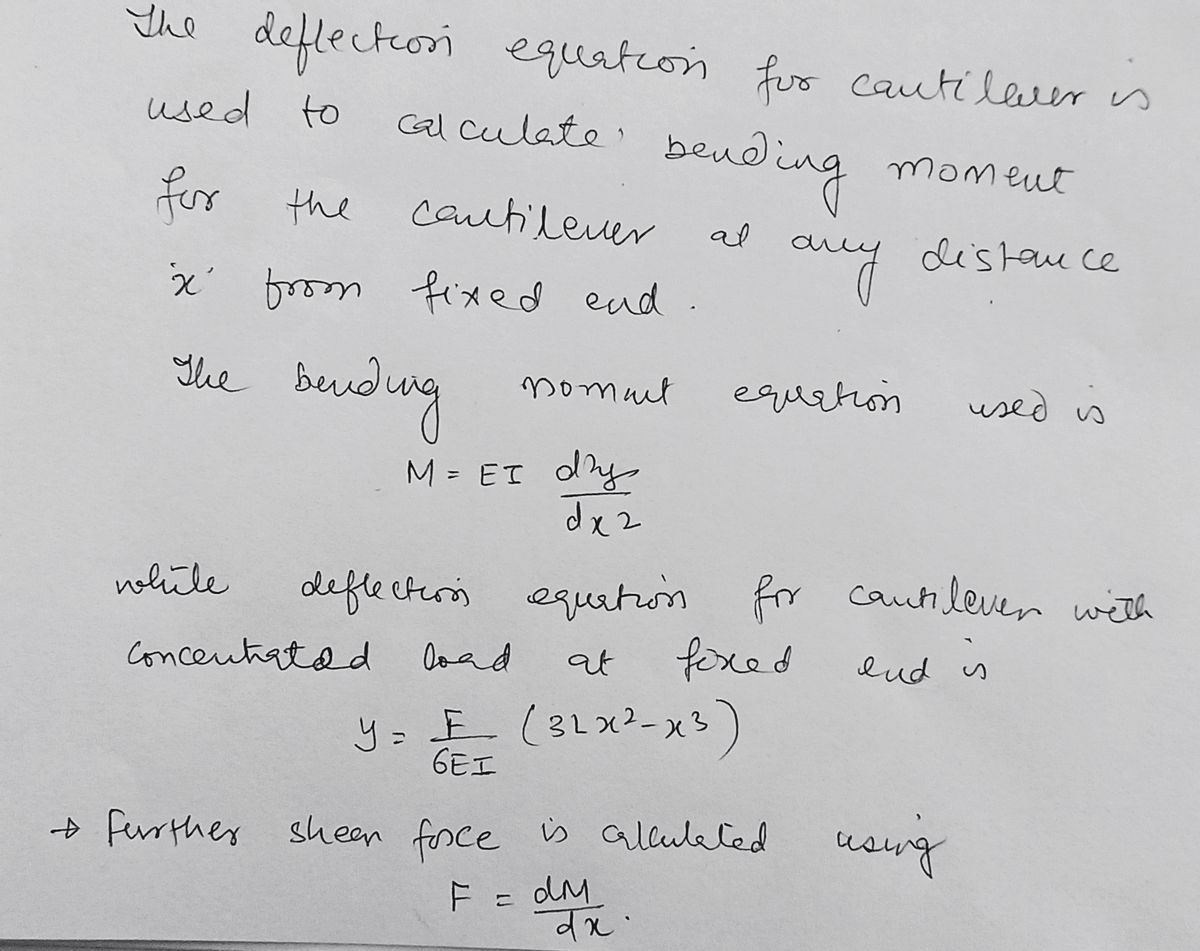 The deflection equation for cantilever is
used to calculate bending moment
for the cantilever at any distance
'x' from fixed end.
The bending moment equation used is
M = EI d²y
dx2
while deflection equation for cantilever with
concentrated load at fixed end is
y = F (3Lx²-x3)
6EI
→ further shear force is calculated using
F = dM
dx.